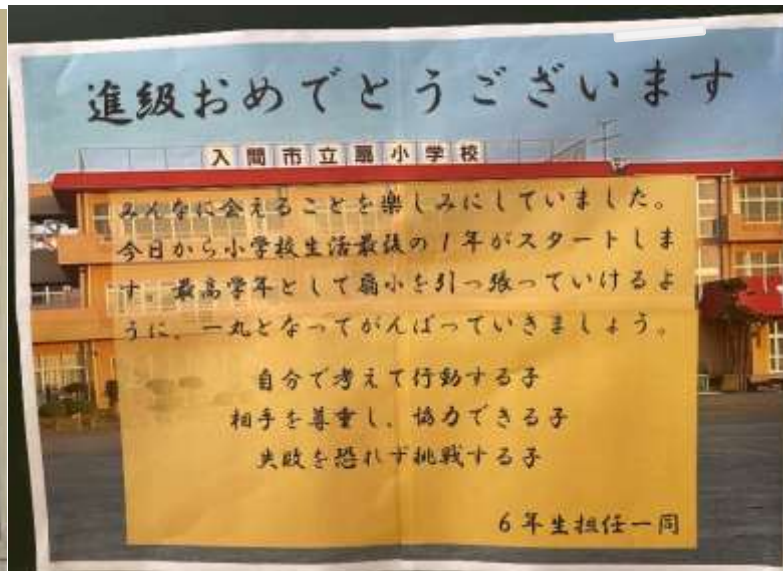 進級おめでとうございます
入間市立扇小学校
みんなに会えることを楽しみにしていました。
今日から小学校生活最後の1年がスタートしま
す。最高学年として扇小を引っ張っていけるよ
うに、一丸となってがんばっていきましょう。
自分で考えて行動する子
相手を尊重し、協力できる子
失敗を恐れず挑戦する子
6年生担任一同